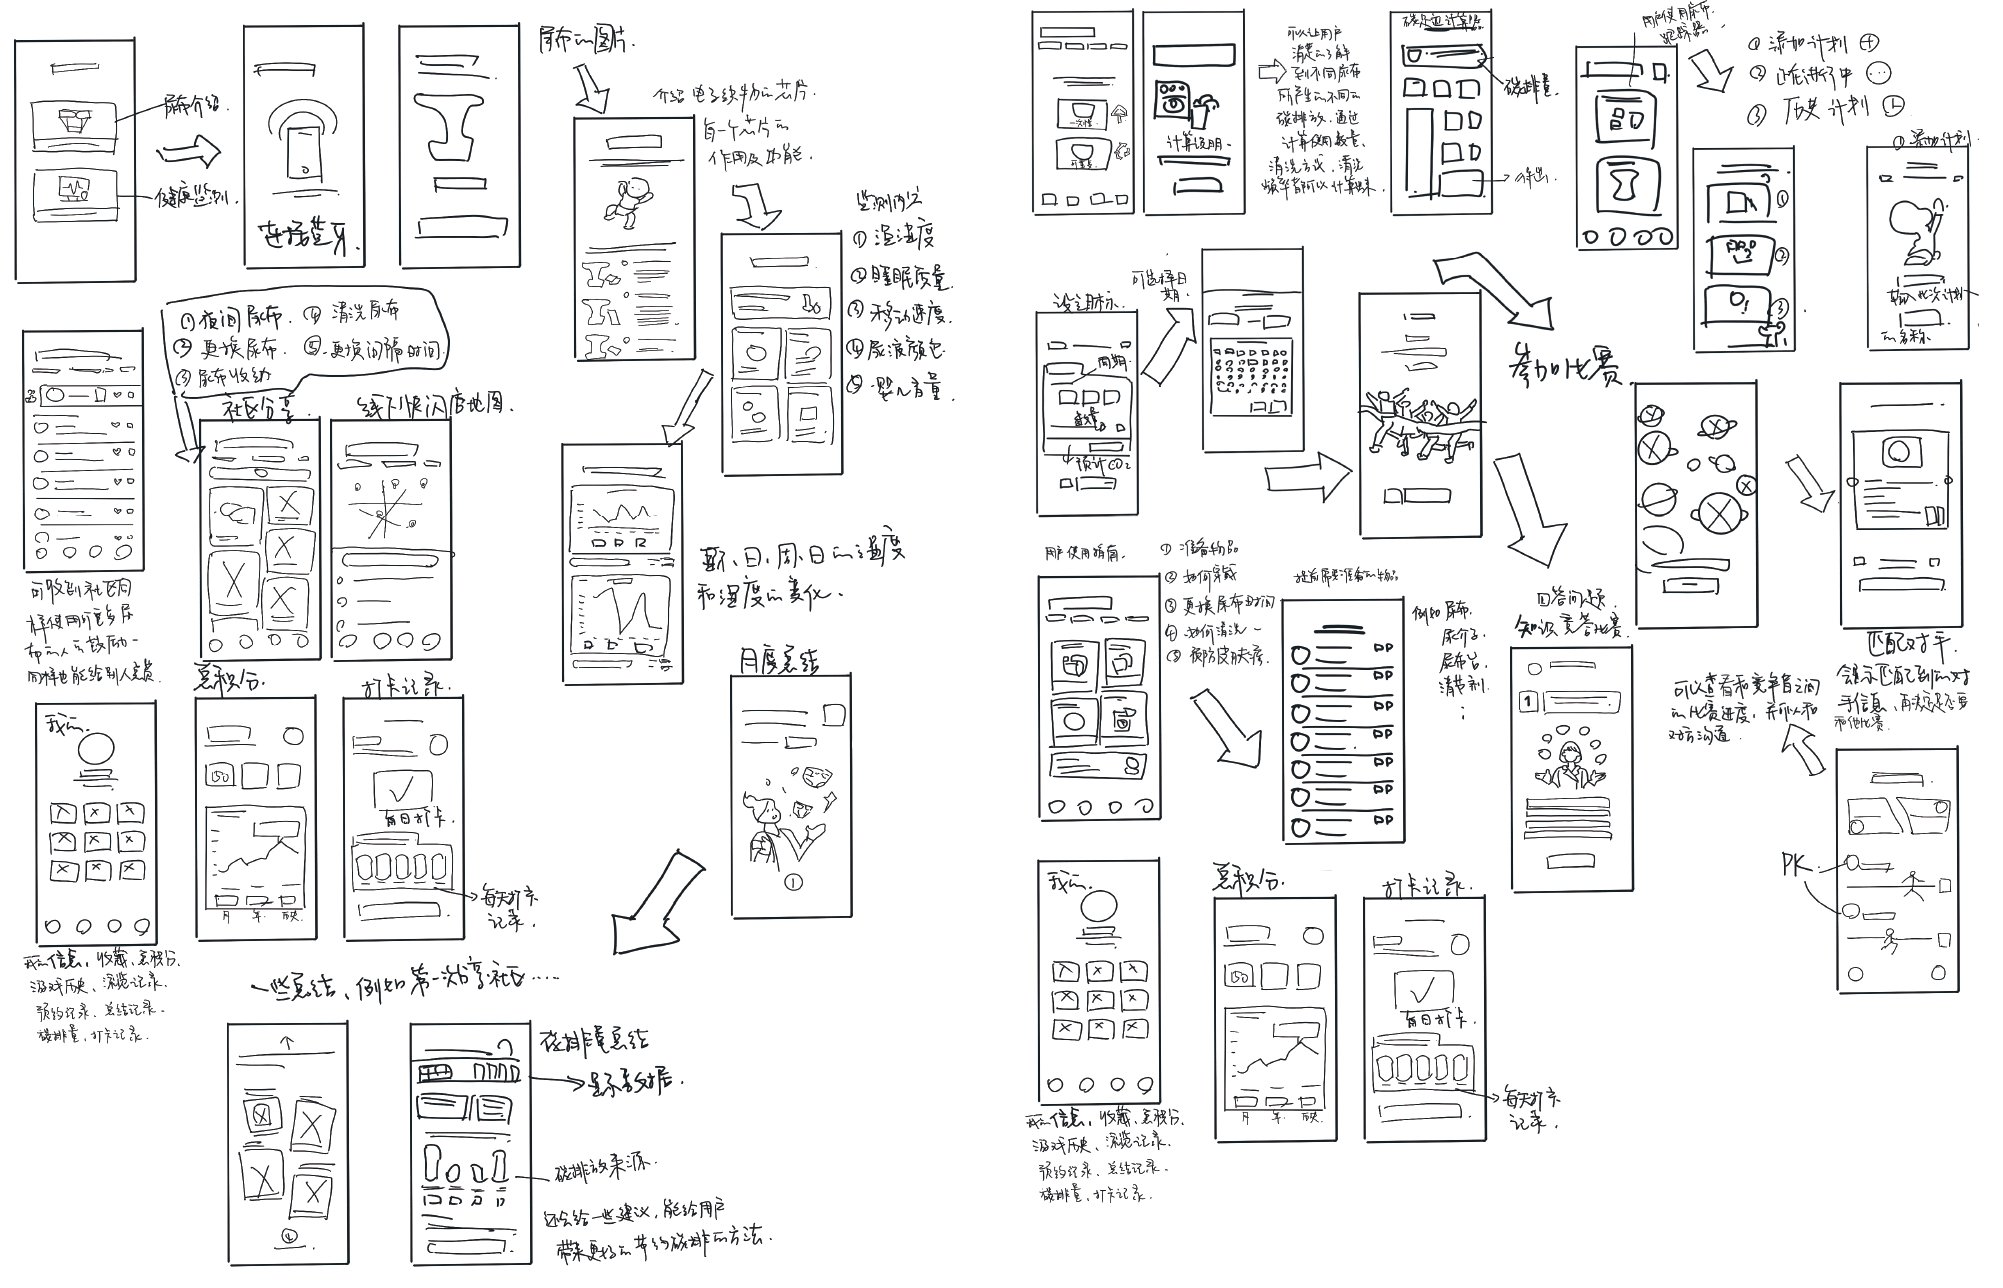 尿布介绍.
健康监测.
连接蓝牙.
尿布的图片.
介绍电子织物的芯片
每一个芯片的
作用及功能.
监测内容
① 温湿度
② 睡眠质量.
③ 移动速度.
④ 尿液颜色.
⑤ 婴儿音量.
① 夜间尿布. ④ 清洗尿布
② 更换尿布. ⑤ 更换间隔时间.
③ 尿布收纳
社区分享.
线下快闪店地图.
可收到社区同
样使用可重复尿
布的人的鼓励一
同样也能给别人点赞.
显示、日、周、日的温度
和湿度的变化.
月度总结
①
我的.
总积分.
150
月 年.
打卡记录.
每日打卡
每天打卡
记录.
我的信息, 收藏, 总积分.
游戏历史、浏览记录.
预约记录、总结记录.
碳排量, 打卡记录.
一些总结、例如第一次分享社区……
碳排量总结
显示数据.
碳排放来源.
还会给一些建议, 能给用户
带来更好的节约碳排的方法.
一次性
可重复
计算说明.
可以让用户
清楚的了解
到不同尿布
所产生的不同的
碳排放. 通过
计算使用数量、
清洗方式、清洗
频率都可以计算出来.
碳足迹计算器.
碳排量.
用户使用尿布
跟踪器.
① 添加计划
② 正在进行中
③ 历史计划
① 添加计划
①
②
③
输入此次计划
的名称.
设定目标.
可选择日
期.
周期.
数量
预计CO2
参加比赛.
用户使用指南.
① 准备物品
② 如何穿戴
③ 更换尿布时间
④ 如何清洗
⑤ 预防皮肤疹.
提前需要准备的物品
例如尿布.
尿布台.
清节剂.
回答问题.
知识竞答比赛.
1
匹配对手.
会显示匹配到的对
手信息, 再决定是否要
和他比赛.
可以查看和竞争者之间
的比赛进度, 并可以和
对方沟通.
PK.
我的.
总积分.
150
月 年.
打卡记录.
每日打卡.
每天打卡
记录.
我的信息, 收藏, 总积分.
游戏历史、浏览记录.
预约记录、总结记录.
碳排量, 打卡记录.